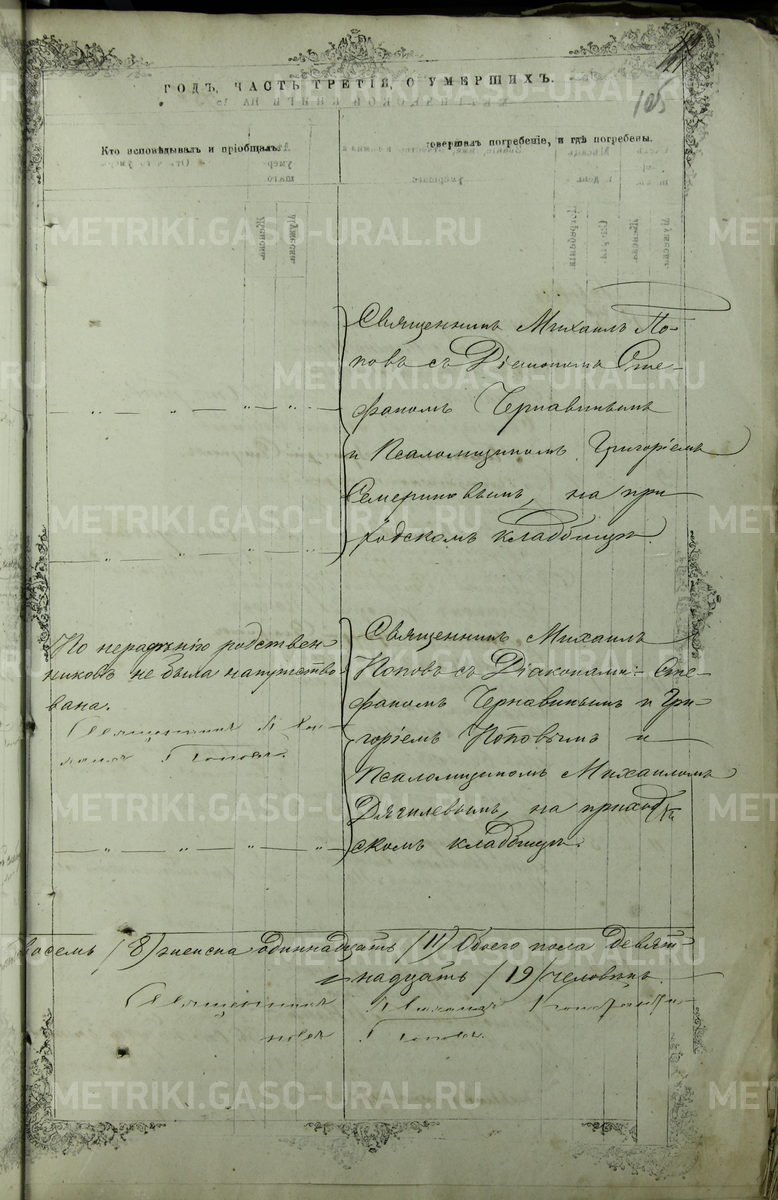 105
ГОДЪ, ЧАСТЬ ТРЕТІЯ, О УМЕРШИХЪ.
Кто исповѣдывалъ и пріобщалъ.
совершалъ погребеніе, и гдѣ погребены.
Священникъ Михаилъ По-
повъ съ Діакономъ Сте-
фаномъ Чернавинымъ
и Псаломщикомъ Григоріемъ
Семериковымъ, на при-
ходскомъ кладбищѣ.
По нерадѣнію родствен-
никовъ не была напутство-
вана.
Священникъ Миха-
илъ Поповъ.
Священникъ Михаилъ
Поповъ съ Діаконами: Сте-
фаномъ Чернавинымъ и Гри-
горіемъ Поповымъ и
Псаломщикомъ Михаиломъ
Дягилевымъ, на приход-
скомъ кладбищѣ.
восемь /8/ женска одиннадцать /11/ Обоего пола девят-
надцать /19/ человѣкъ.
Священникъ Михаилъ
Поповъ.
METRIKI.GASO-URAL.RU